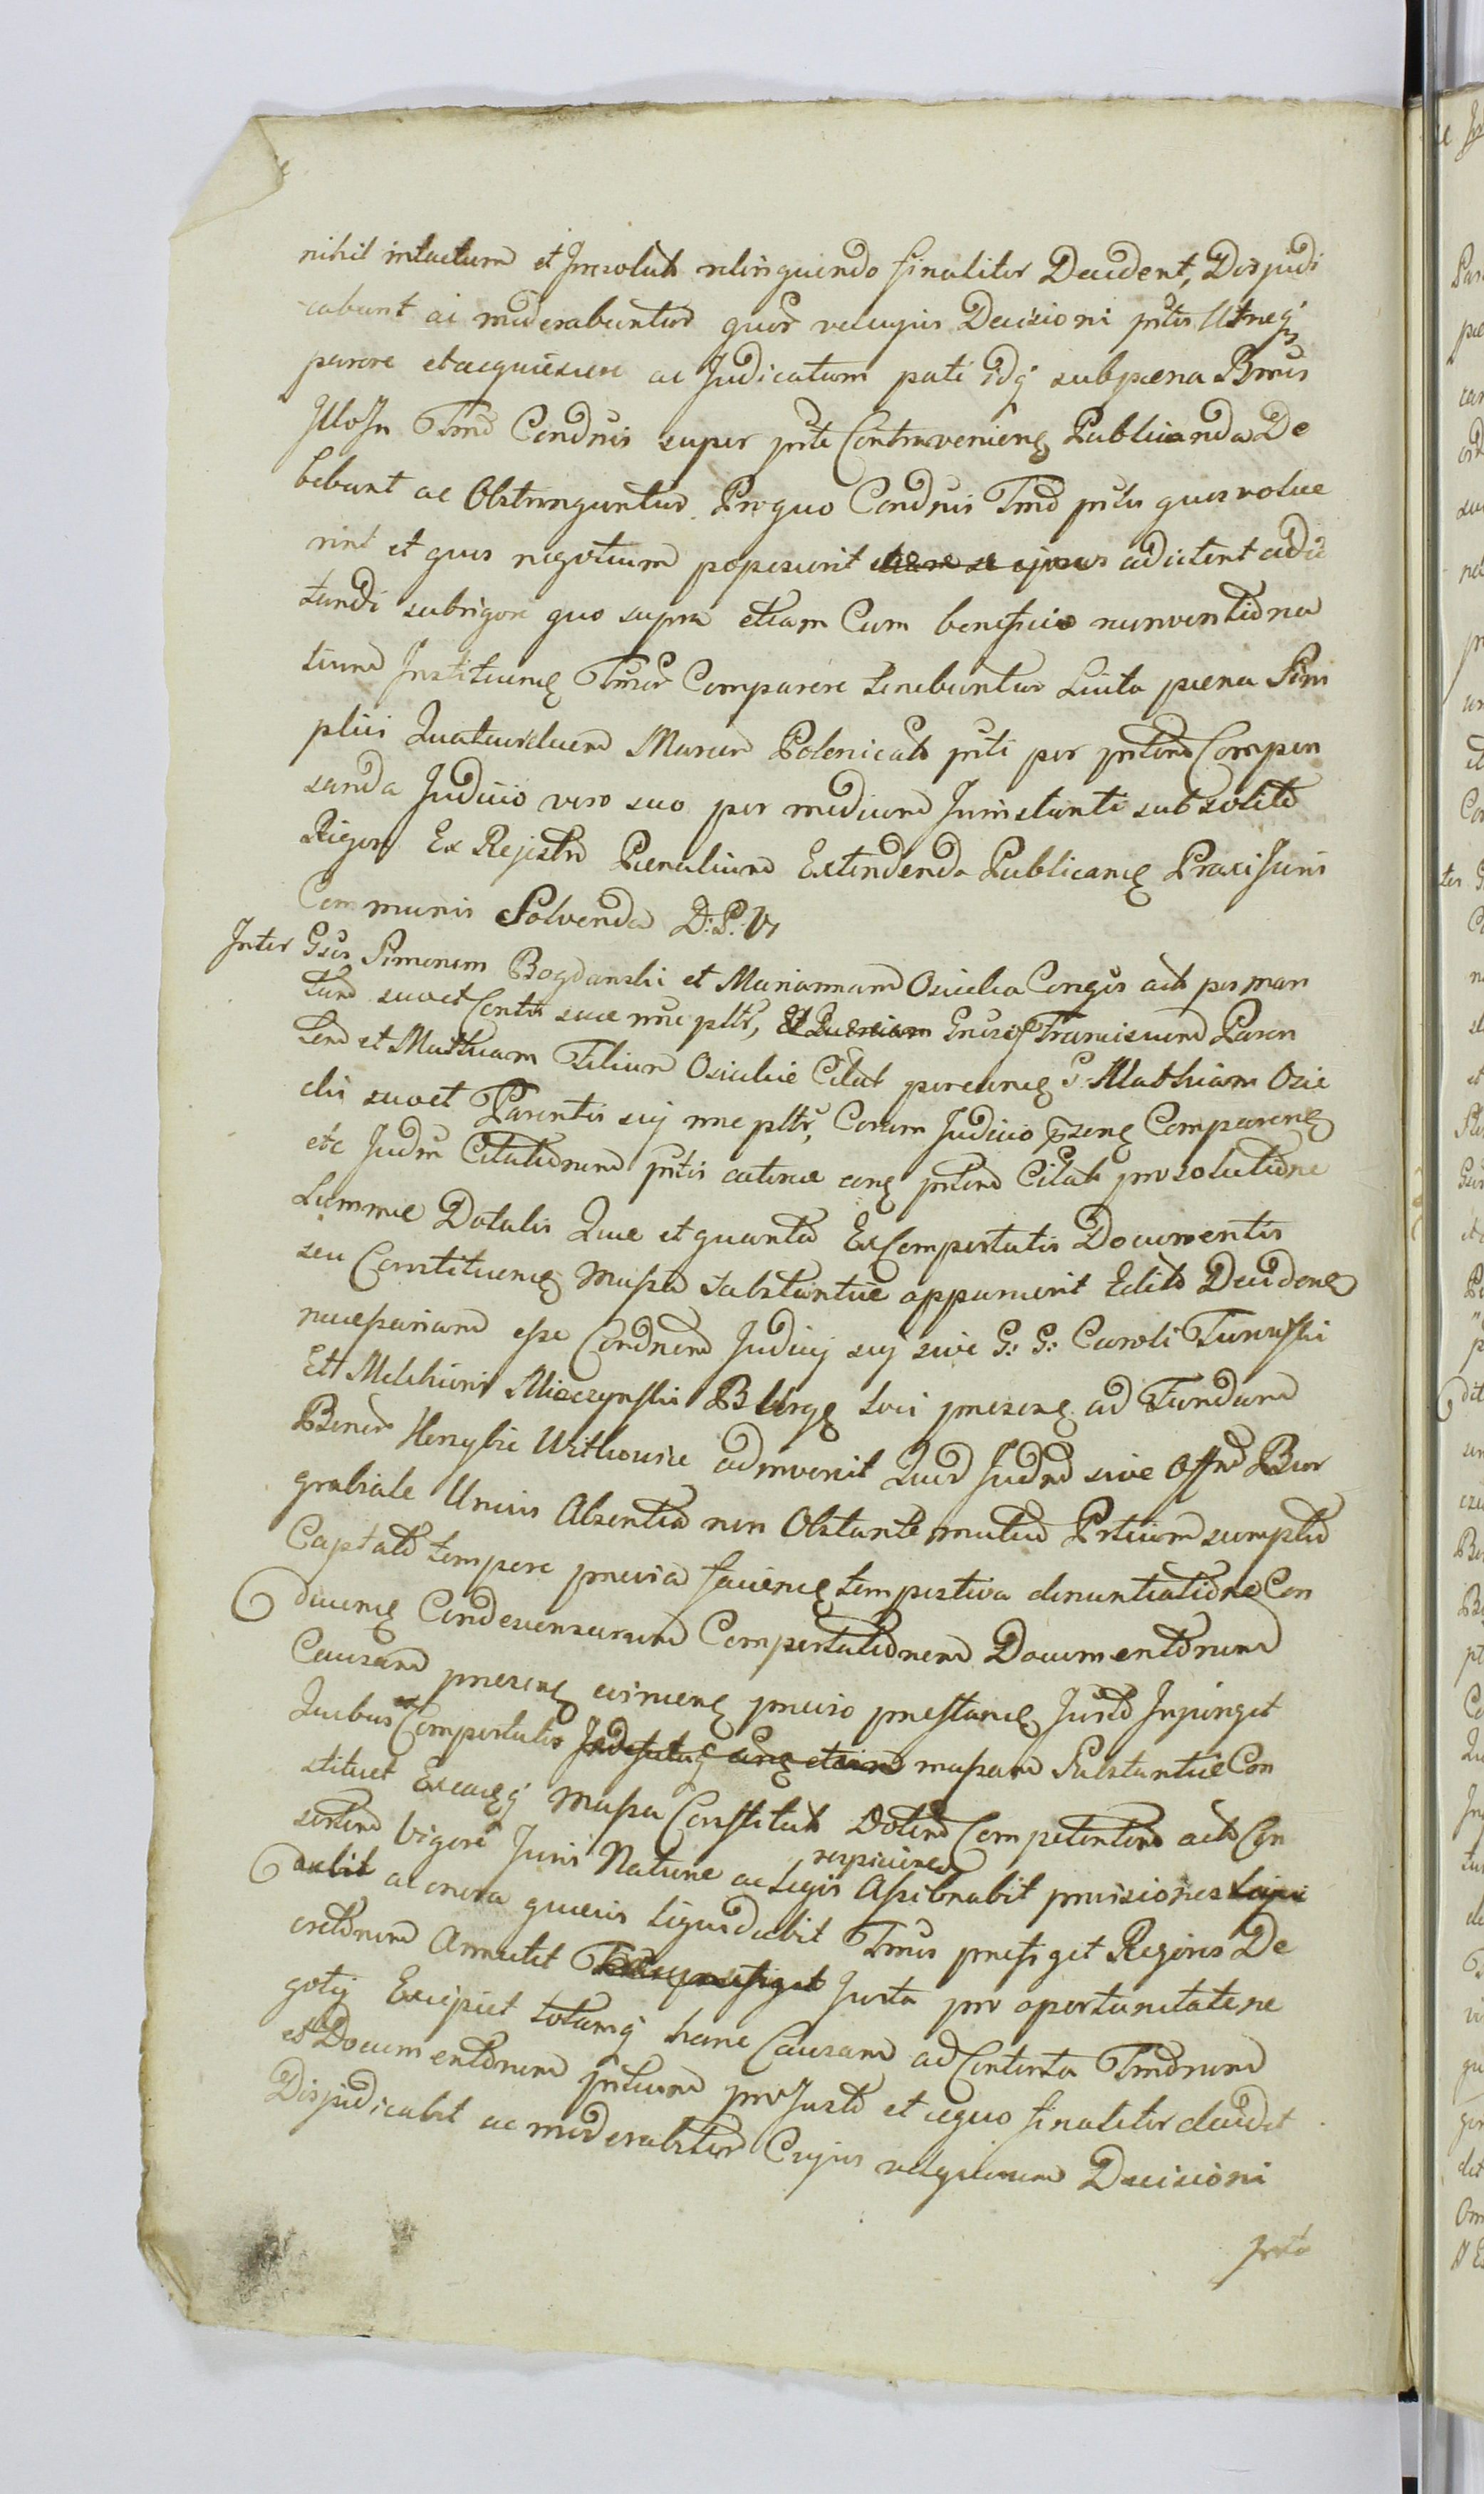 nihil intactum et Irresolut relinquendo finaliter Decident, Disjudi
cabunt ac moderabuntur quor velcujus Decisioni ptes Utneq
parere etacquiescere ac Judicatum pati idq subpoena Bmis
Illo In Tmo Condnis super pte Contraveniens Publicanda De
bebunt ac Obstringuntur. Proquo Condnis Tmo ptes quosvolue
rint et quos negotium poposcerit adcitent adci
tandi subrigore quo supra etiam Cum beneficio nunventiona
tium Instituens Tmor Comparere tenebuntur Luita poena Sim
plici Quatuordecim Marcar Polonicals pti per ptem Compen
sanda Judicio vero suo per medium Juris stanti sub solito
Rigore Ex Rejestro Poenalium Extendenda Publicans Praxi Juris
Communis Solvenda D: P: V
Inter Gsos Simonem Bogdanski et Mariannam Osiecka Conges act per man
datm suoet Contis suae nne pltr, Gnrosos Franciscum Paren
tem et Mathiam Filium Osieckie Citat pereuns G Mathiam Osie
cki suoet Parentis suj nne pltr, Coram Judicio pzens Comparens
etc Judm Citationum ptis actoreae cons ptem Citat prosolutione
Summae Dotalis Quae et quanta Ex Comportatis Documentis
seu Constituens Massa Substantiae apparuerit Edito Decidens
necessarium esse Condnem Judicij suj sive G: G: Caroli Turnoski
Et Melchioris Mioczynski Burgg Loci praesens ad Fundum
Bonor Henybie Witkowice admvenit Quod Judm sive Offm Bur
grabiale Unius Absentia non Obstante mutuo Ptium sumpto
Captato tempore praevia faciens tempestiva denuntiatione Con
ducens Condescensurum Comportationem Documentorum
Causam praesens ejsmens praevio praestans Jurto Injunget
Quibus Comportatis massam Substantiae Con
stituet Exeaeq Massa Constitut Dotem Competentem act Con
sortem vigore Juris Naturae ac Legis respiciens Assibnabit provisiones
ac onera quaevis liquidabit Tmus praefiget Regiones De
cretorum Annectet Jurta pro oportunitate ne
gotij Excipiet totamq hanc Causam ad Contenta Tmorum
et Documentorum ptium pro Justo et aequo finaliter decidet
Disjudicabit ac moderabitur Cujus velquorum Decisioni